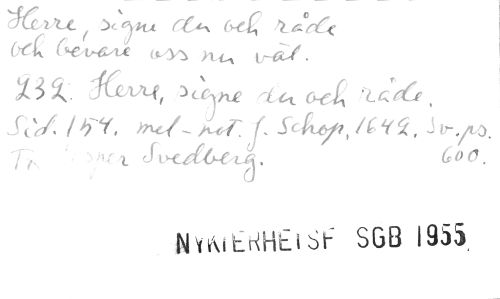 Herre, signe du och råde
och bevare oss nu väl.
232. Herre, signe du och råde.
Sid. 154. mel-not. J. Schop, 1642. Sv. ps.
Jesper Svedberg. 600.
NYKTERHETSF SGB 1955